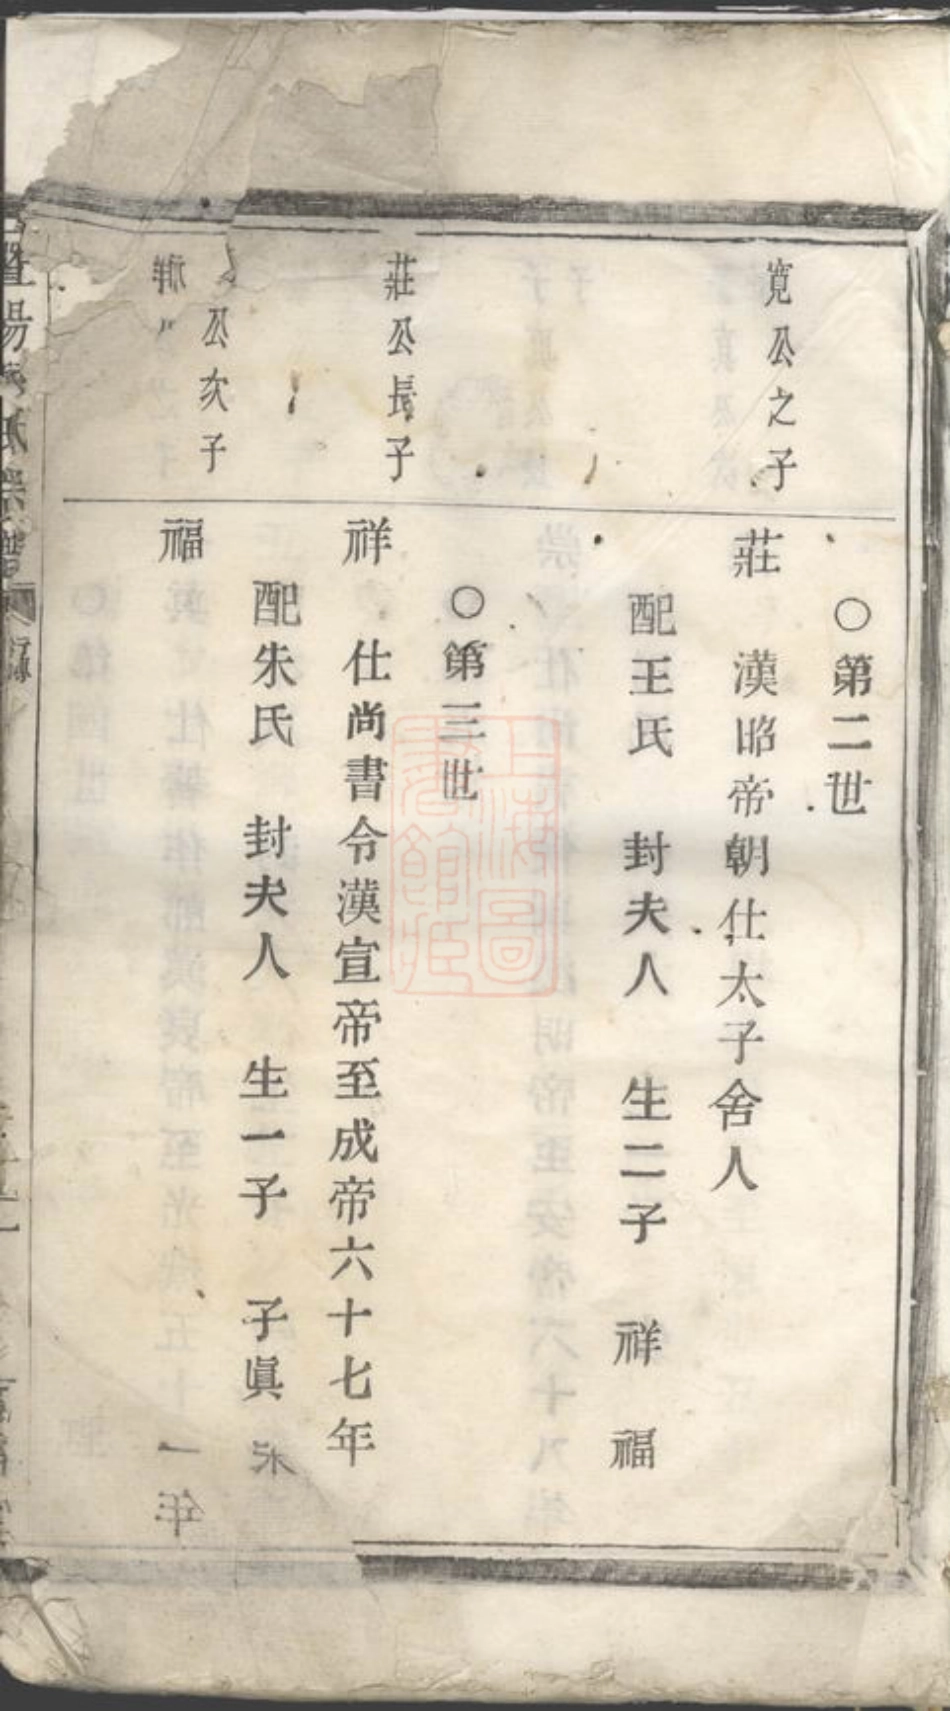 ○第二世
寬公之子
莊 漢昭帝朝仕太子舍人
配王氏 封夫人 生二子 祥 福
○第三世
莊公長子
祥 仕尚書令漢宣帝至成帝六十七年
配朱氏 封夫人 生一子 子眞
公次子
福
一年